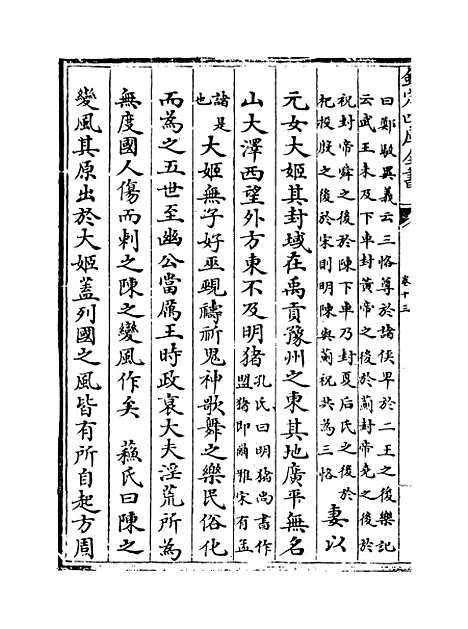 欽定四庫全書
卷十三
曰鄭駁異義云三恪尊於諸侯卑於二王之後樂記
云武王未及下車封黄帝之後於薊封帝堯之後於
祝封帝舜之後於陳下車乃封夏后氏之後於
杞投殷之後於宋則明陳與薊祝共為三恪
妻以
元女大姬其封域在禹貢豫州之東其地廣平無名
山大澤西望外方東不及明豬
孔氏曰明豬尚書作
盟豬即爾雅宋有孟
諸是
也
大姬無子好巫覡禱祈鬼神歌舞之樂民俗化
而為之五世至幽公當厲王時政衰大夫淫荒所為
無度國人傷而刺之陳之變風作矣 蘇氏曰陳之
變風其原出於大姬蓋列國之風皆有所自起方周